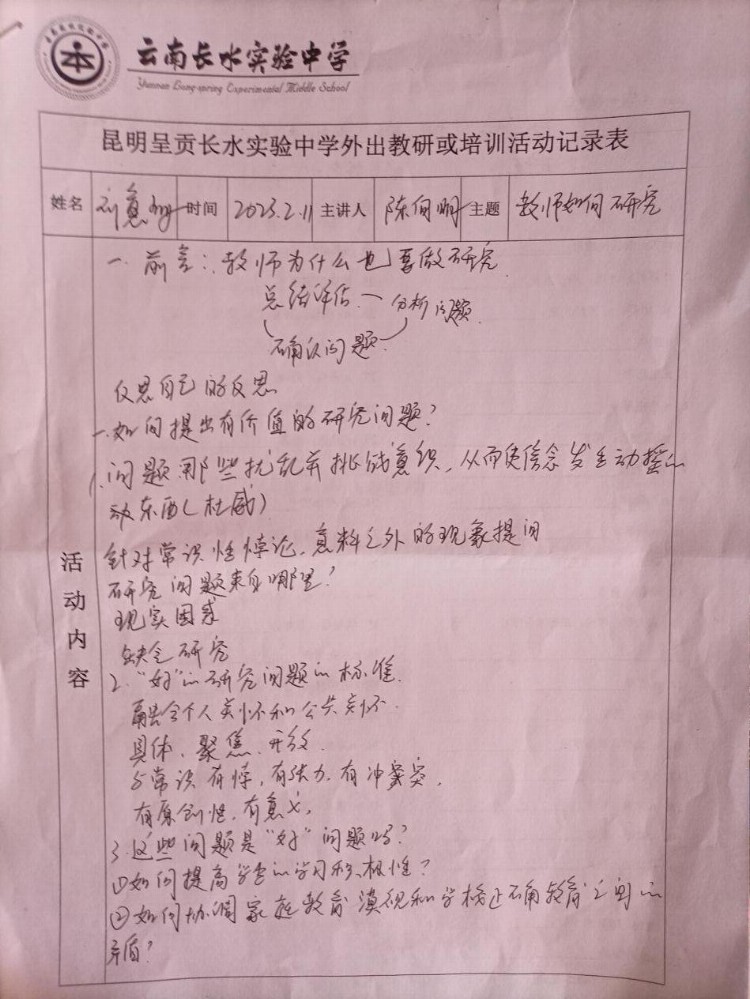 云南长水实验中学
Yunnan Long-spring Experimental Middle School
昆明呈贡长水实验中学外出教研或培训活动记录表
姓名 刘 时间 2023.2.11 主讲人 陈向明 主题 教师如何研究
一、前言：教师为什么也要做研究
总结评估 — 分析问题
确认问题
反思自己的反思
一、如何提出有价值的研究问题？
1、问题：那些扰乱并挑战意识，从而使信念发生动摇的
东西（杜威）
针对常识性悖论，意料之外的现象提问
研究问题来自哪里？
现实困惑
缺乏研究
2、“好”的研究问题的标准
融合个人关怀和公共关怀
具体、聚焦、开放
与常识有悖，有张力，有冲突
有原创性，有意义。
3、这些问题是“好”问题吗？
①如何提高学生的学习积极性？
②如何协调家庭教育漠视和学校正确教育之间的
矛盾？
活动内容